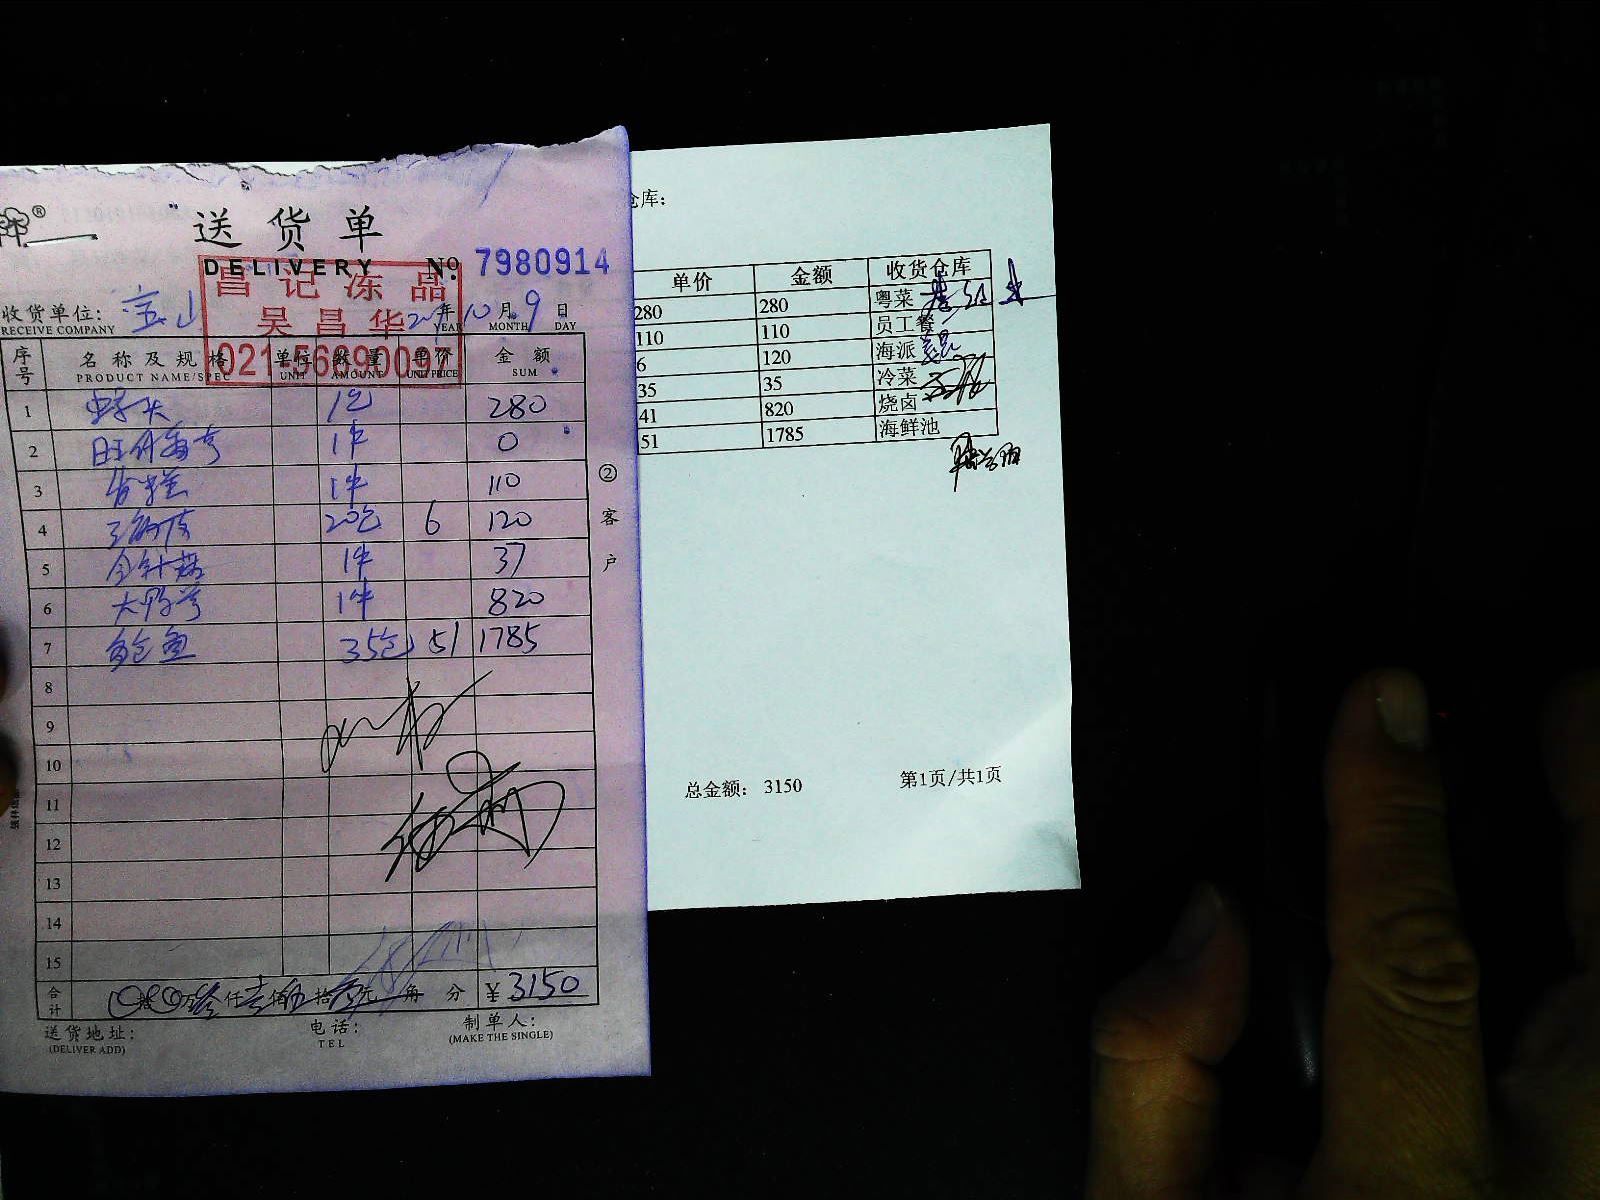 送货单
DELIVERY № 7980914
昌记冻品
吴昌华
021-56690097
收货单位: 宝山 年 10 月 9 日
RECEIVE COMPANY YEAR MONTH DAY
序号 名称及规格 单位 数量 单价 金额
PRODUCT NAME/SPEC UNIT AMOUNT UNIT PRICE SUM
1 1包 280
2 1件 0
3 1件 110
4 20包 6 120
5 金针菇 1件 37
6 1件 820
7 鲍鱼 35包 51 1785
8
9
10
11
12
13
14
15
② 客户
合计 拾 万 仟 佰 拾 元 角 分 ¥3150
送货地址: 电话: 制单人:
(DELIVER ADD) TEL (MAKE THE SINGLE)
仓库:
单价 金额 收货仓库
280 280 粤菜
110 110 员工餐
6 120 海派
35 35 冷菜
41 820 烧卤
51 1785 海鲜池
总金额: 3150 第1页/共1页